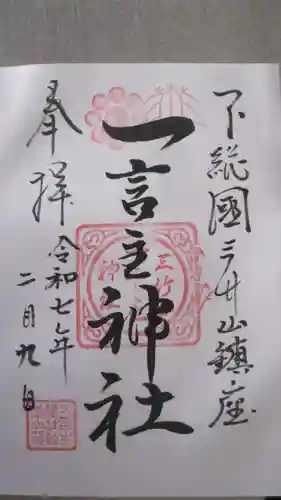 下総國三竹山鎮座
一言主神社
奉拝
令和七年
二月九日